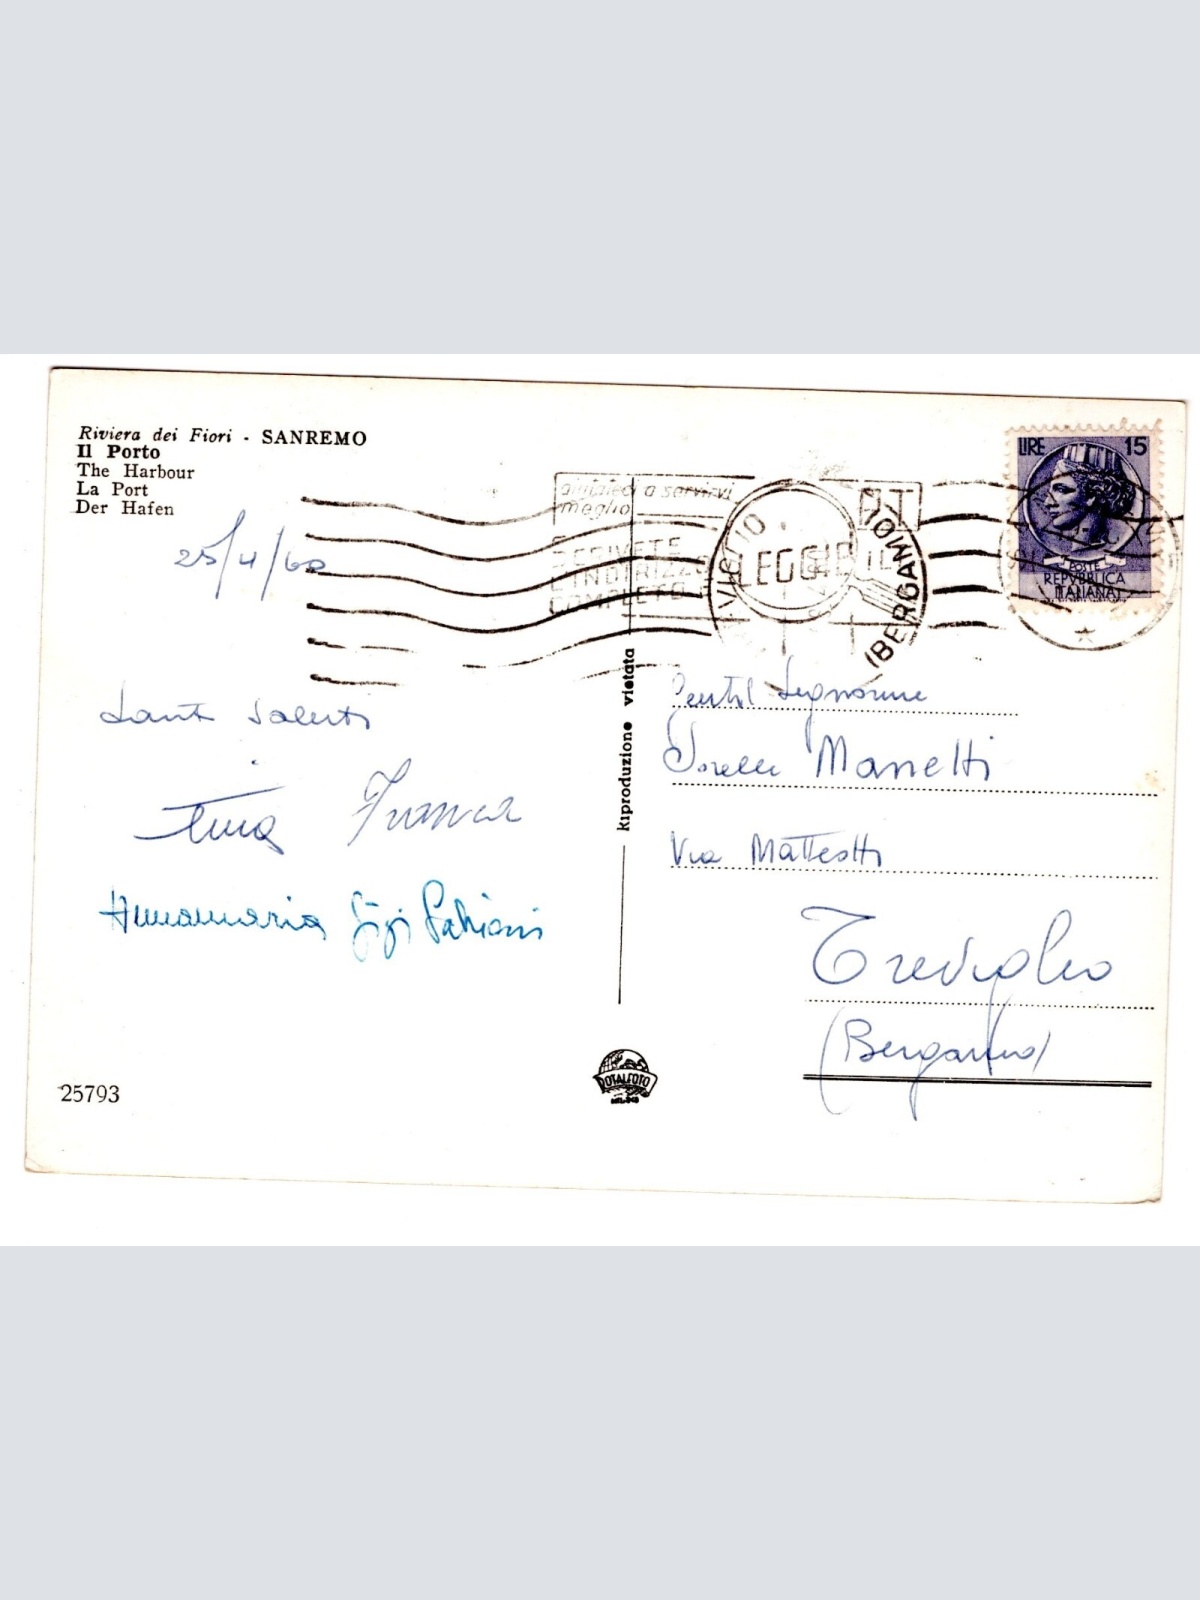 Riviera dei Fiori - SANREMO
Il Porto
The Harbour
La Port
Der Hafen
25/4/60
Tanti Saluti
Tina Franca
Annamaria Gigi Fabiani
25793
Riproduzione vietata
TOTALFOTO
MILANO
aiutateci a servirvi
meglio
P.T.
SCRIVETE
L'INDIRIZZO
COMPLETO
LEGGIBILE
TREVIGLIO
(BERGAMO)
LIRE 15
POSTE
REPVBBLICA
ITALIANA
Gentil Signorine
Sorelle Manetti
Via Matteotti
Treviglio
(Bergamo)